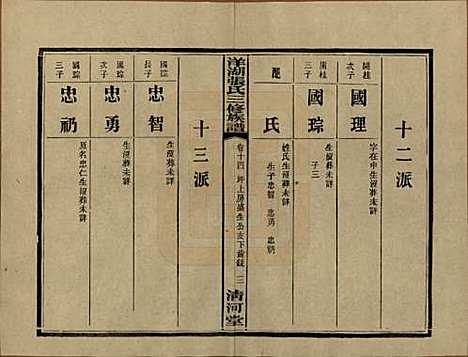 十二派
開桂
次子
國理
字在中生歿葬未詳
開桂
三子
國琮
生歿葬未詳
子三
配
氏
姓氏生歿葬未詳
生子忠智 忠勇 忠礽
洋湖張氏三修族譜
卷十四 坪上房盛生公亥下齒錄
清河堂
十三派
國琮
長子
忠智
生歿葬未詳
國琮
次子
忠勇
生歿葬未詳
國琮
三子
忠礽
原名忠仁生歿葬未詳